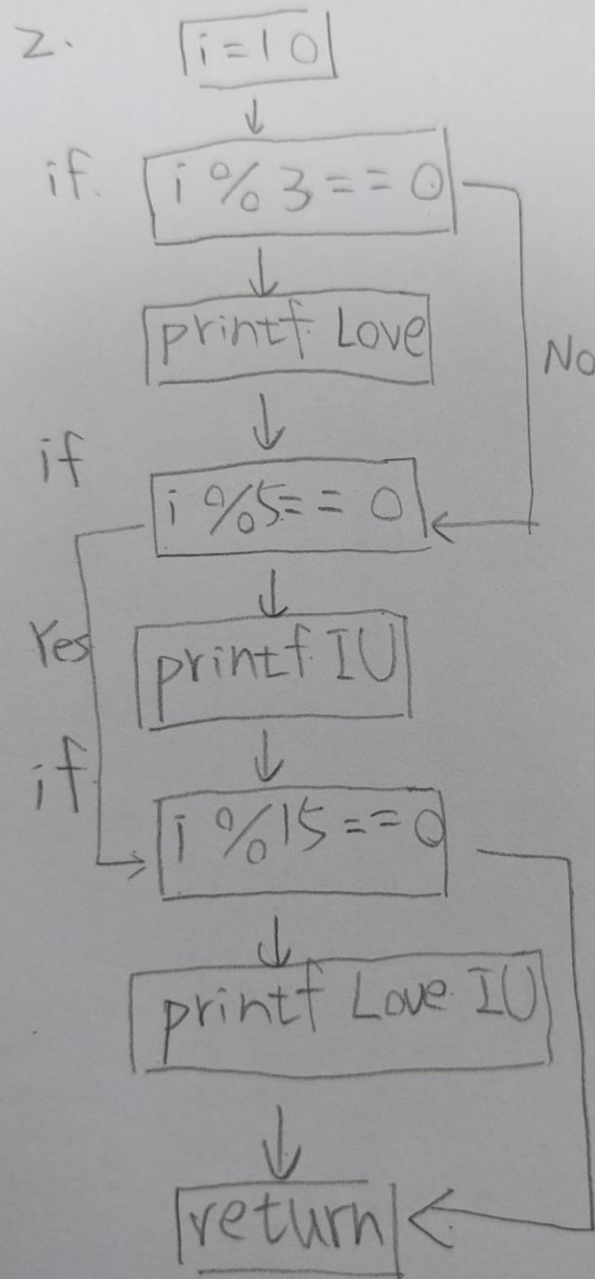 2.
i=10
if. i%3==0
printf Love
No
if
i%5==0
Yes
printf IU
if
i%15==0
printf Love IU
return